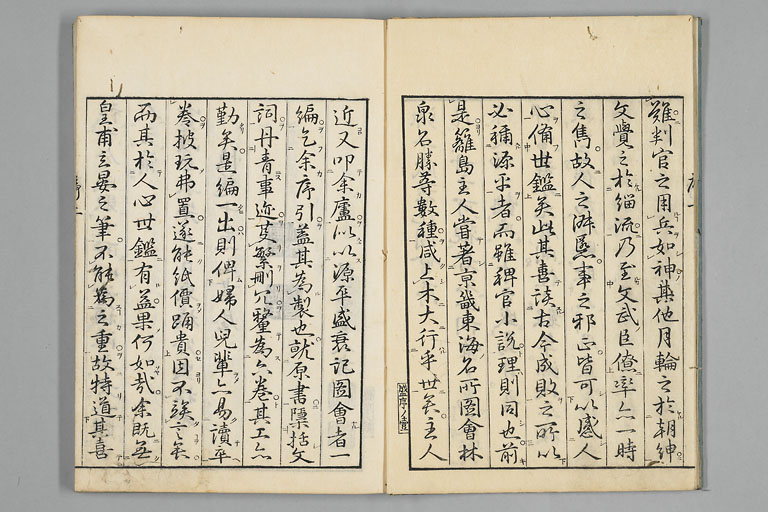 雖判官之用兵如神其他月輪之於朝紳
文覺之於緇流乃至文武臣僚率亦一時
之雋故人之淑慝事之邪正皆可以感人
心備世鑑矣此其喜談古今成敗之所以
必稱源平者而雖稗官小說理則同也前
是籬島主人嘗著京畿東海名所圖會林
泉名勝等數種咸上木大行乎世矣主人
近又叩余廬以以源平盛衰記圖會者一
編乞余序引蓋其為製也就原書檃括文
詞丹青事迹芟繁刪冗釐為六卷其工亦
勤矣是編一出則俾婦人兒輩亦易讀平
卷披玩弗置遂能紙價踊貴固不竢言矣
而其於人心世鑑有益果何如哉余既無
皇甫立晏之筆不能為之重故特道其喜